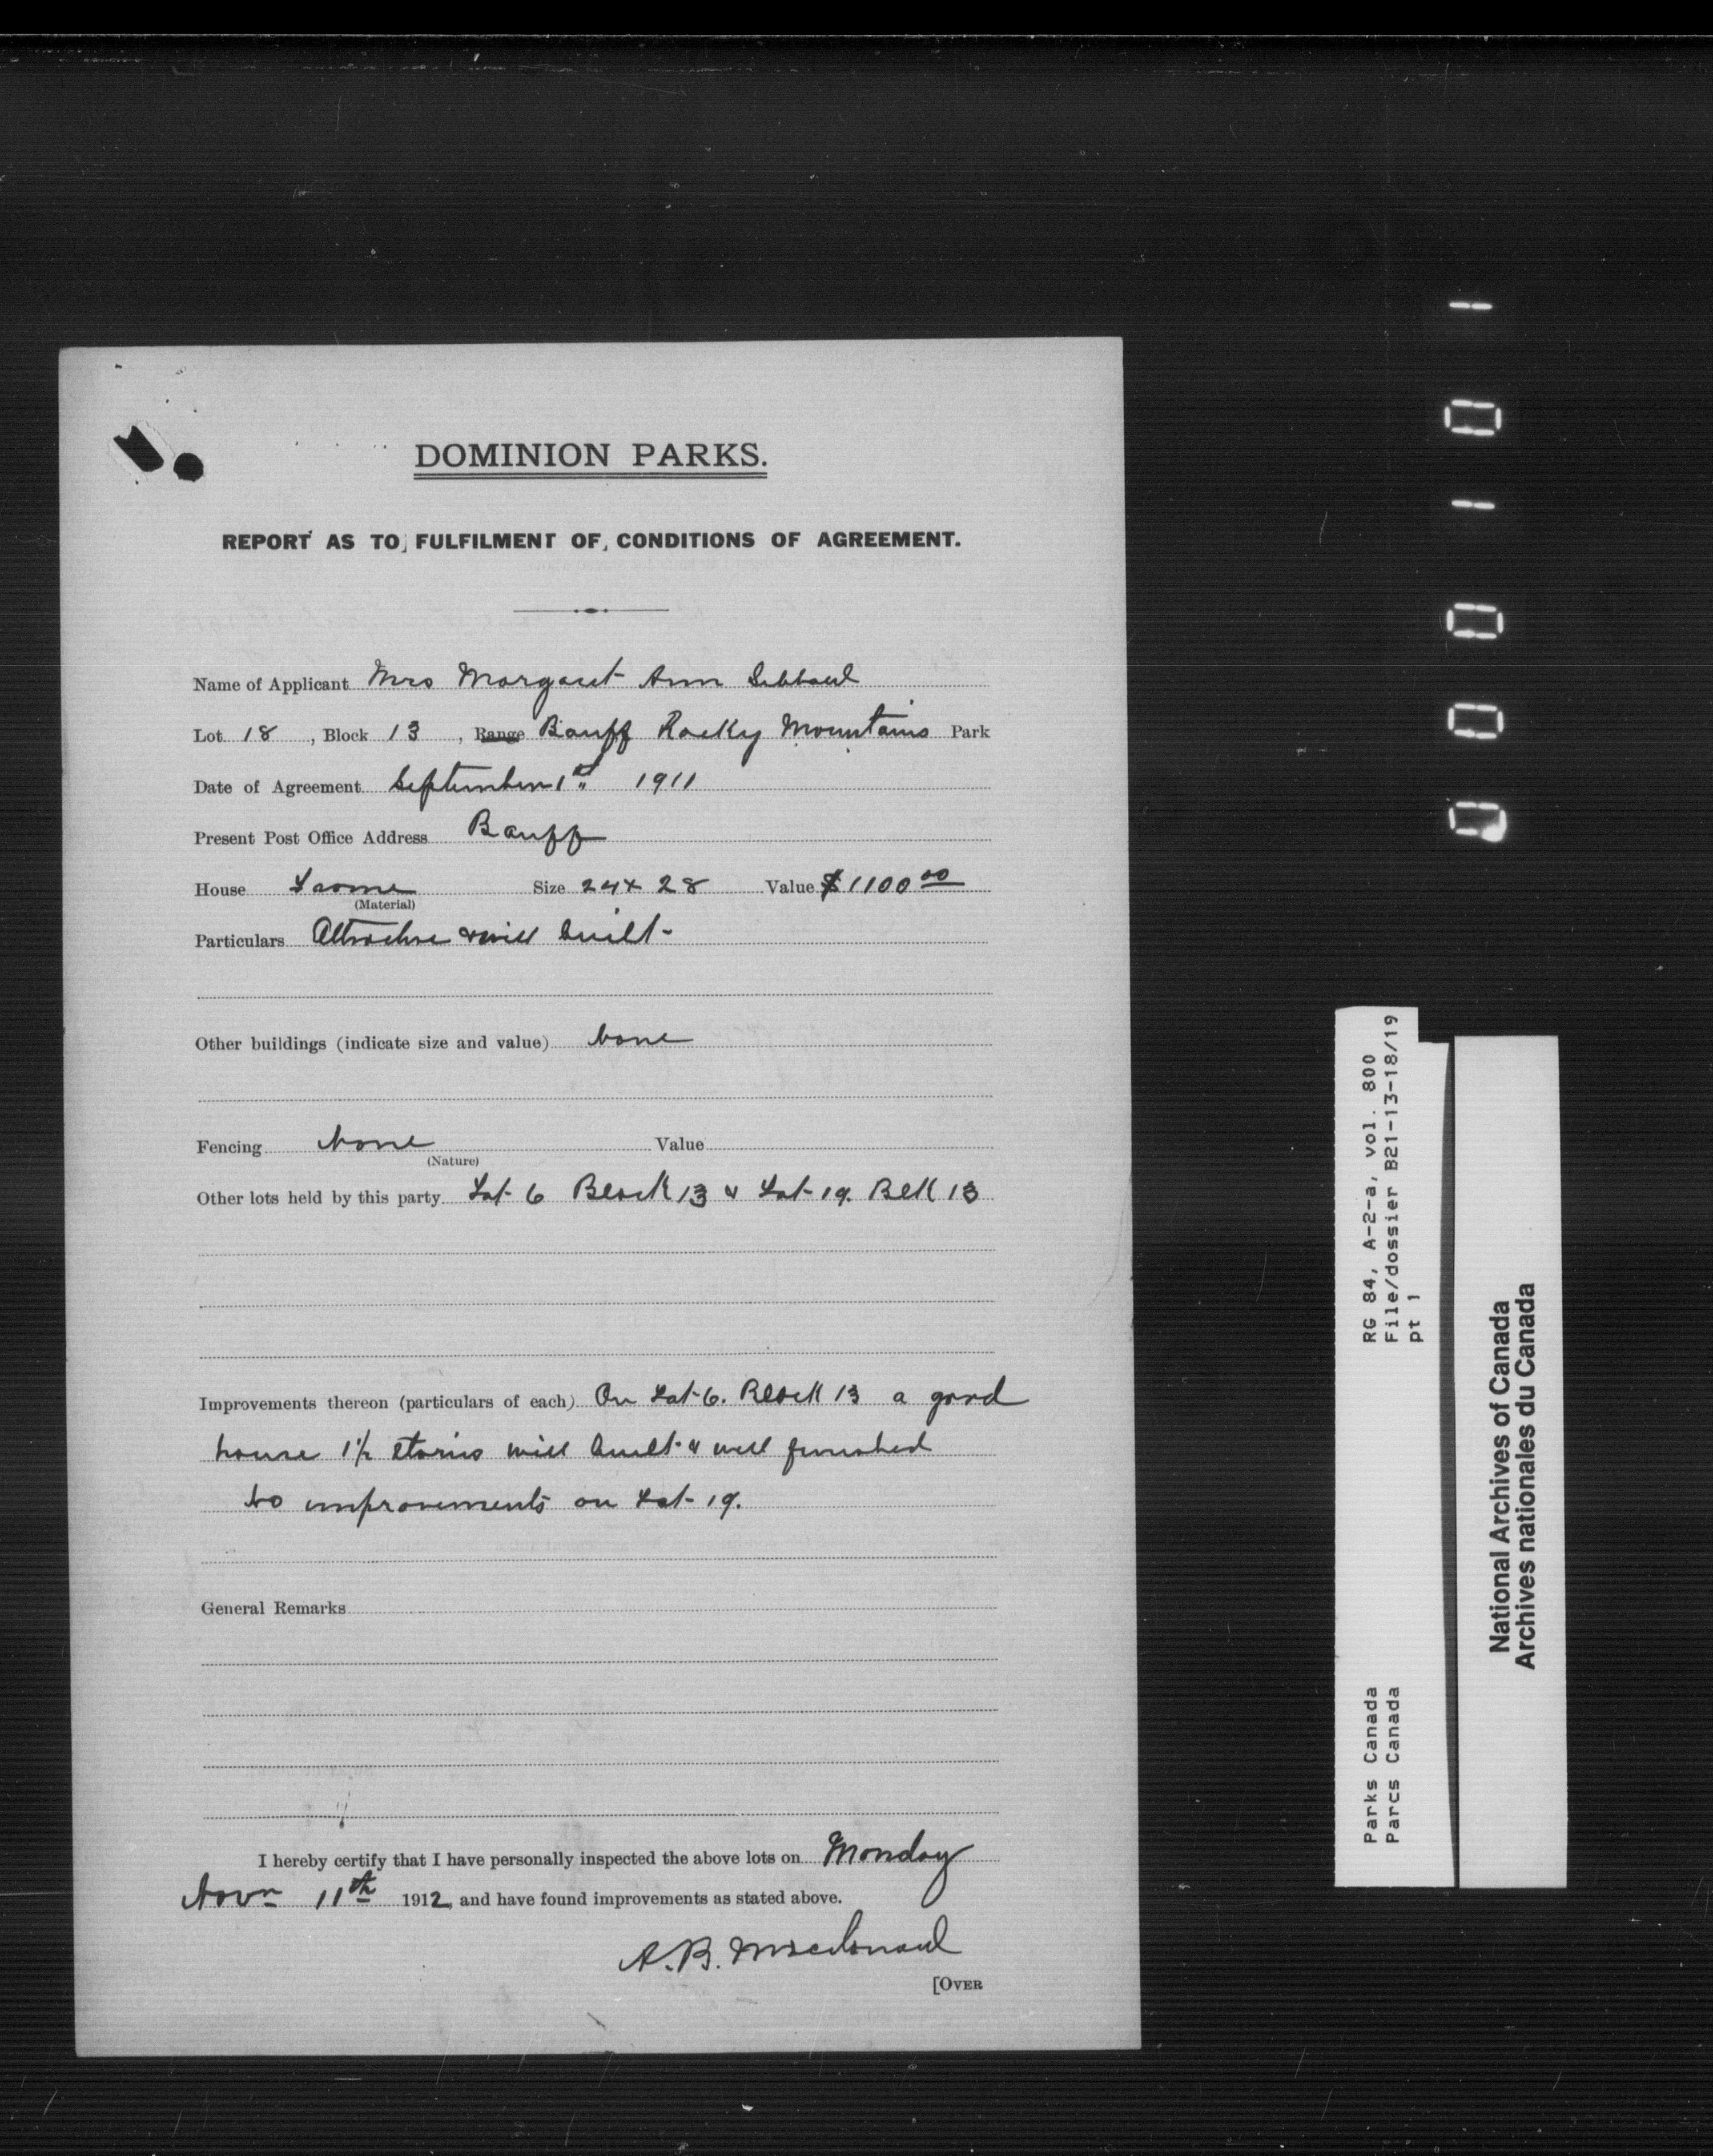 DOMINION PARKS.
REPORT AS TO FULFILMENT OF CONDITIONS OF AGREEMENT.
Name of Applicant Mrs Margaret Ann Sibbald
Lot 18, Block 13, Range Banff Rocky Mountains Park
Date of Agreement September 1st 1911
Present Post Office Address Banff
House Frame Size 24 x 28 Value $1100 00
(Material)
Particulars Attractive & well built
Other buildings (indicate size and value) None
Fencing None Value
(Nature)
Other lots held by this party Lot 6 Block 13 & Lot 19. Blk 13
Improvements thereon (particulars of each) On Lot 6. Block 13 a good
house 1½ stories well built & well finished
No improvements on Lot 19.
General Remarks
I hereby certify that I have personally inspected the above lots on Monday
Novr 11th 1912, and have found improvements as stated above.
A.B. Macdonald
[OVER
RG 84, A-2-a, vol. 800
File/dossier B21-13-18/19
pt 1
Parks Canada
Parcs Canada
National Archives of Canada
Archives nationales du Canada